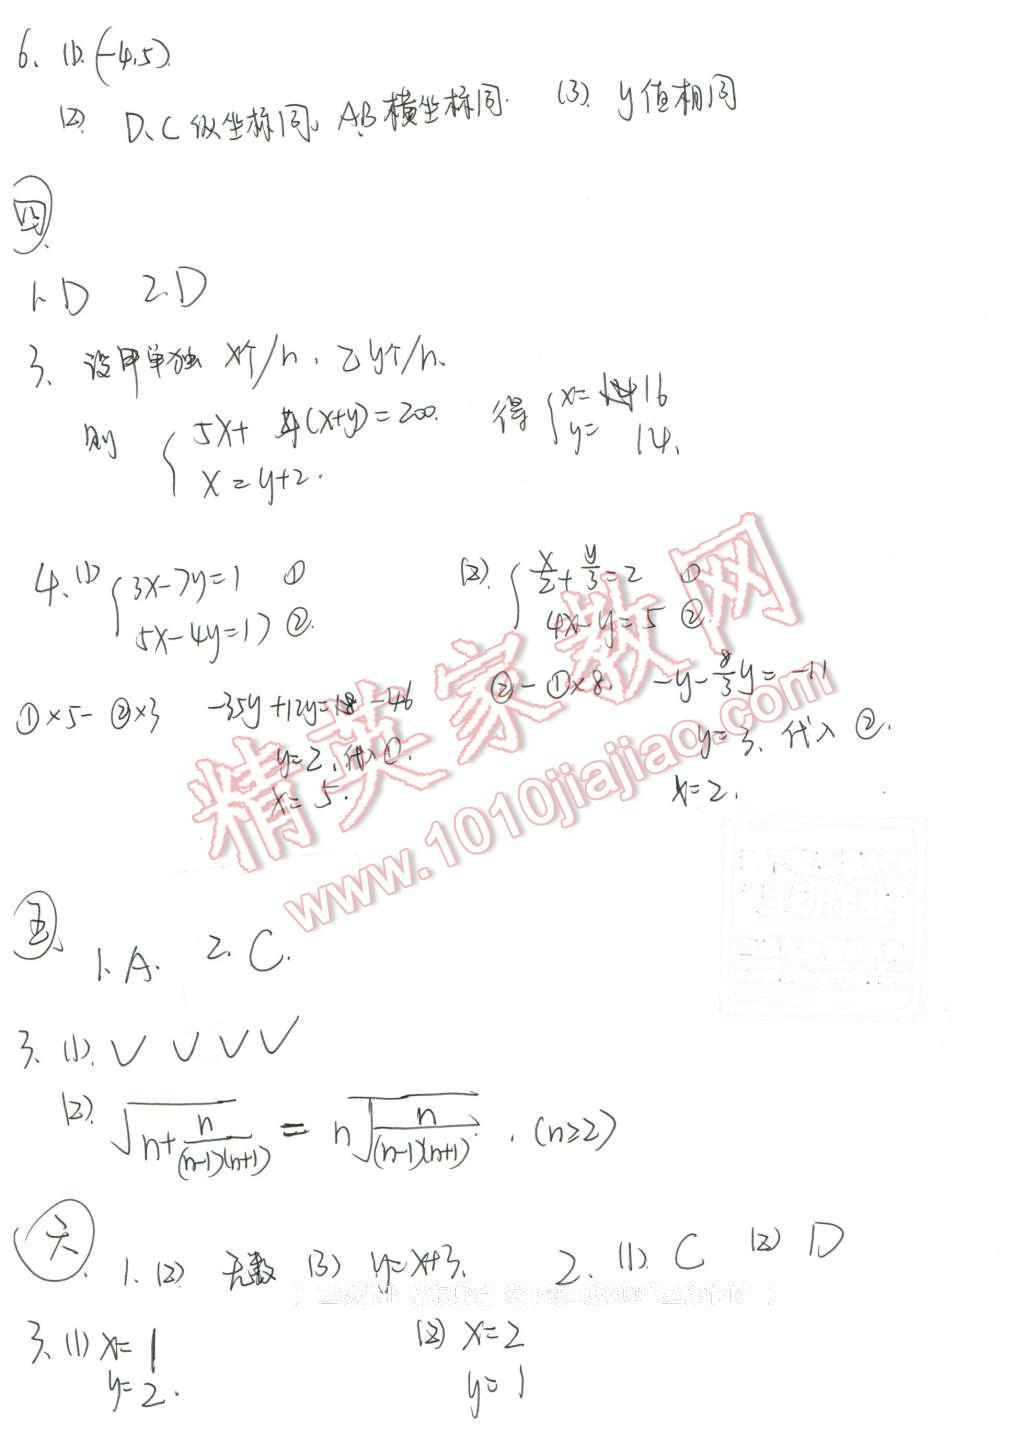 6、(1).(-4,5).
(2) D、C纵坐标同,A、B横坐标同. (3) y值相同
四、
1.D 2.D
3、设甲单独 x个/h,乙y个/h.
则 { 5x+4(x+y)=200. 得 { x=16
x=y+2. y=14.
4、(1) { 3x-7y=1 ① (2). { x/2+y/3=2 ①
5x-4y=17 ②. 4x-y=5 ②
①×5-②×3 -35y+12y=-46 ②-①×8 -y-8/3y=-11
y=2,代入①. y=3、代入②.
x=5. x=2.
精英家教网
www.1010jiajiao.com
互动作业
五、 1.A. 2.C.
3、(1).√ √ √ √
(2). √(n+n/((n-1)(n+1))) = n√(n/((n-1)(n+1))) .(n≥2)
六、 1.(2) 无数 (3) y=x+3. 2、(1).C (2) D
3、(1) x=1 (2) x=2
y=2. y=1